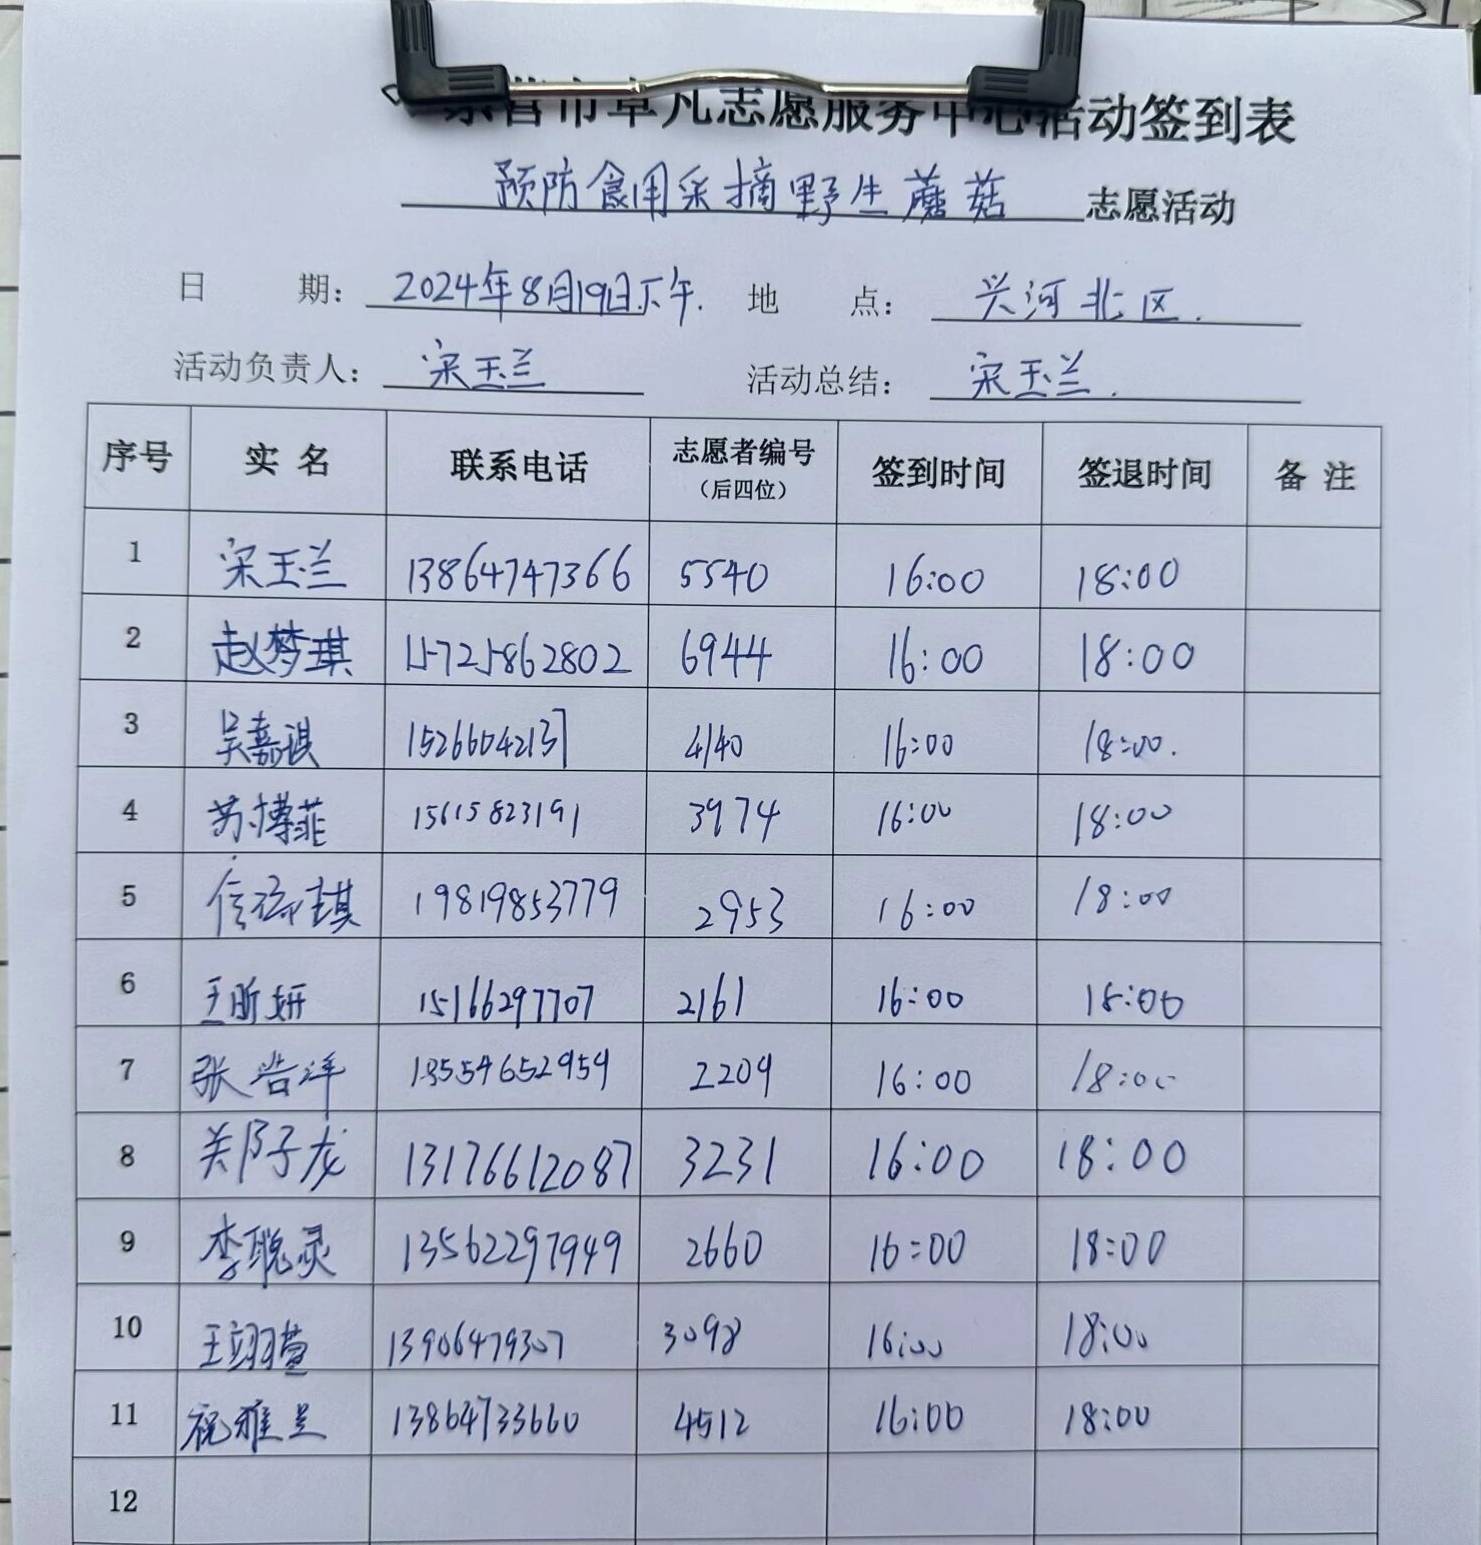 东营市草凡志愿服务中心活动签到表
预防食用采摘野生蘑菇 志愿活动
日 期： 2024年8月19日下午. 地 点： 兴河北区.
活动负责人： 宋玉兰 活动总结： 宋玉兰.
序号 实名 联系电话 志愿者编号（后四位） 签到时间 签退时间 备注
1 宋玉兰 13864747366 5540 16:00 18:00
2 赵梦琪 15725862802 6944 16:00 18:00
3 吴嘉琪 15266042137 4140 16:00 18:00.
4 苏博菲 15615823191 3974 16:00 18:00
5 信 琪 19819853779 2953 16:00 18:00
6 王昕妍 15166297707 2161 16:00 18:00
7 张浩洋 13554652959 2209 16:00 18:00
8 关子龙 13176612087 3231 16:00 18:00
9 李聪灵 13562297949 2660 16:00 18:00
10 王翊萱 13906479307 3098 16:00 18:00
11 祝雅 13864733660 4512 16:00 18:00
12